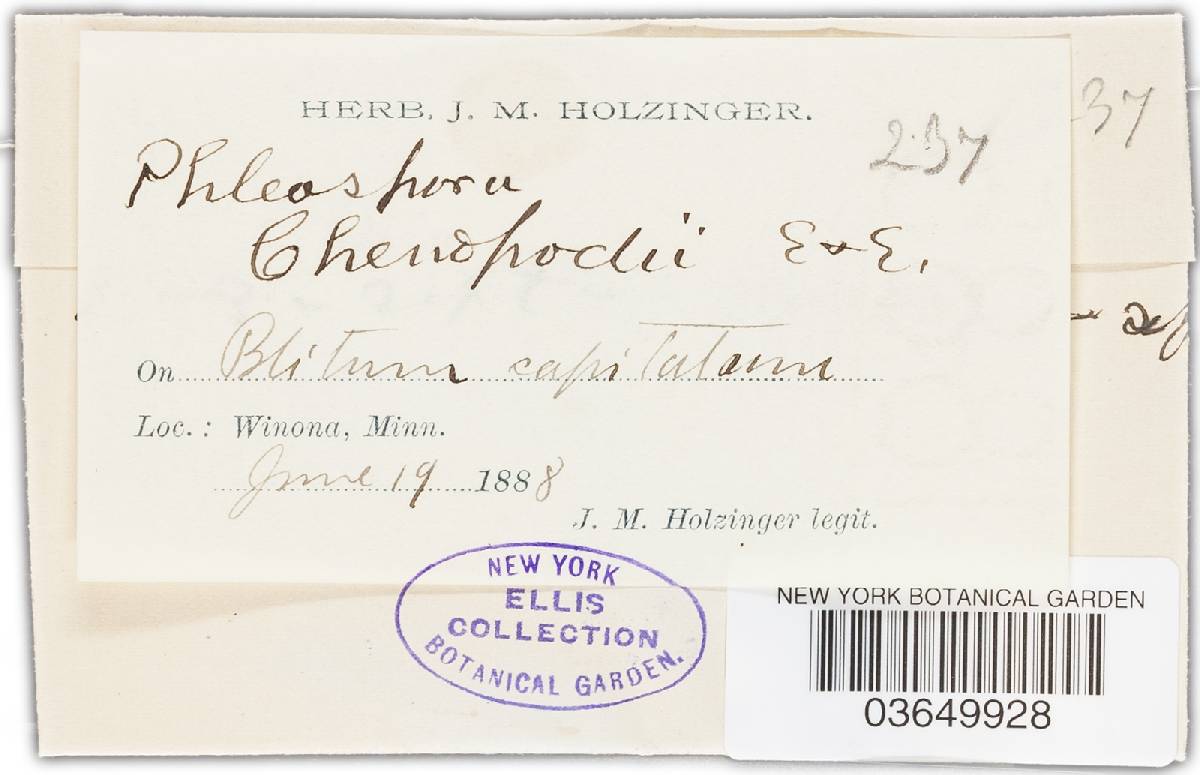 HERB. J. M. HOLZINGER.
237
37
Phleospora
Chenopodii E & E.
On Blitum capitatum
Loc.: Winona, Minn.
June 19 1888
J. M. Holzinger legit.
NEW YORK
ELLIS
COLLECTION
BOTANICAL GARDEN.
NEW YORK BOTANICAL GARDEN
03649928